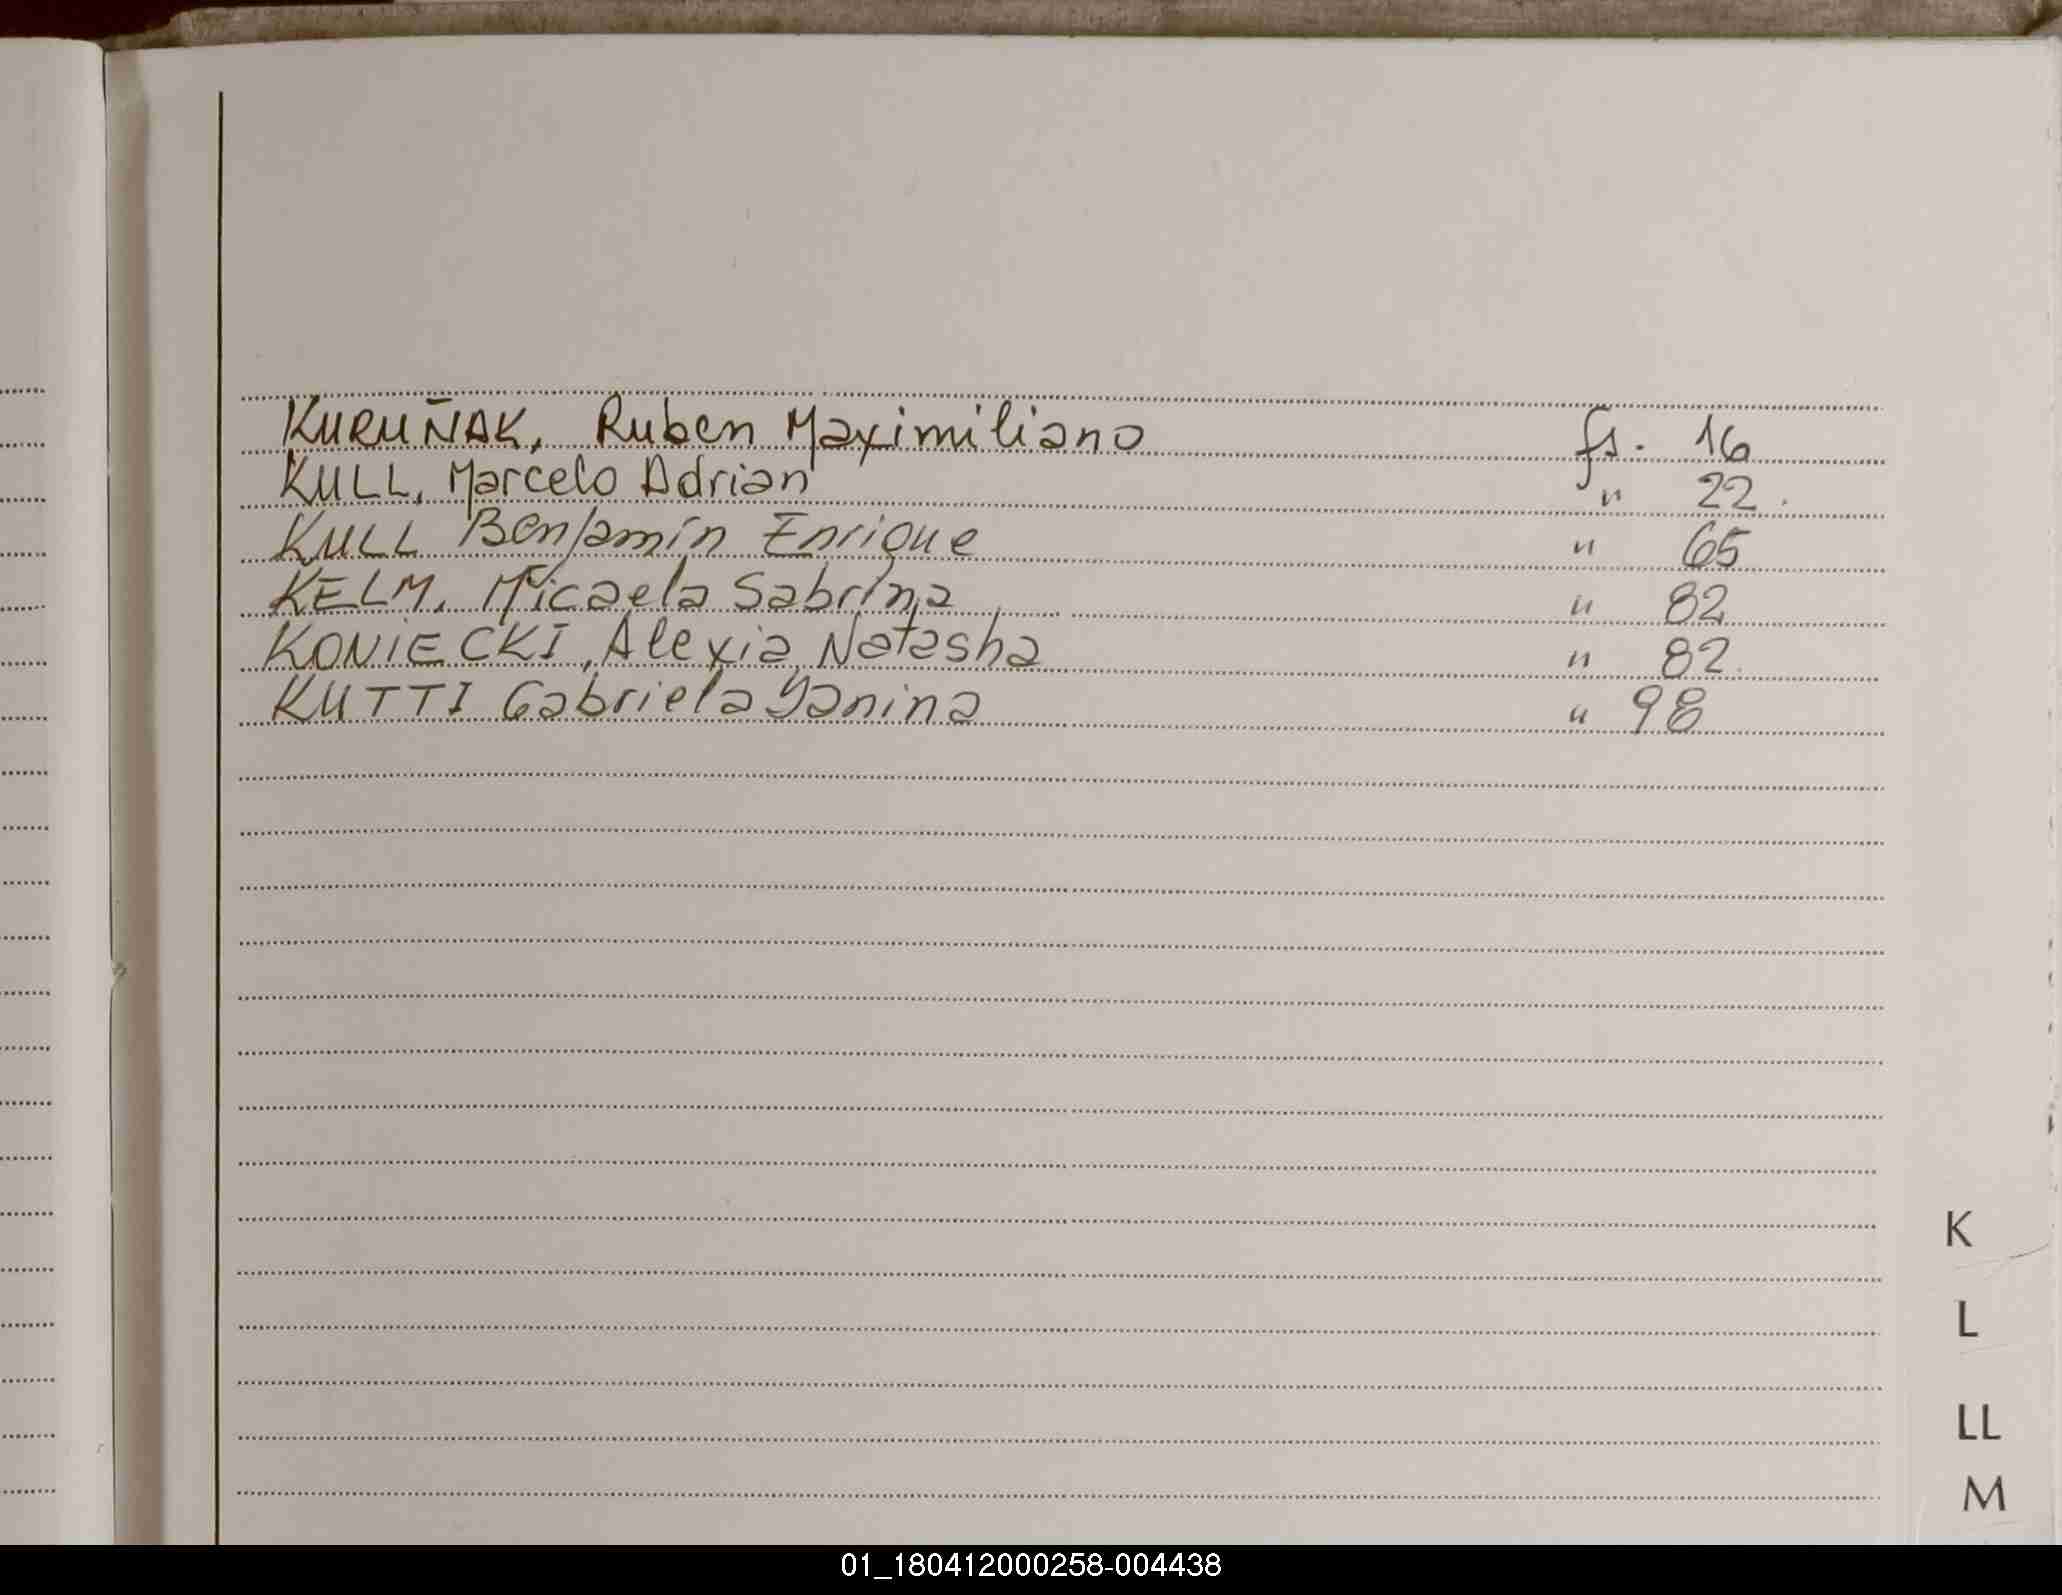 KURUÑAK, Ruben Maximiliano fs. 16
KULL, Marcelo Adrian " 22.
KULL Benjamín Enrique " 65
KELM, Micaela Sabrina " 82
KONIECKI, Alexia Natasha " 82.
KUTTI Gabriela Yanina " 98
K
L
LL
M
01_180412000258-004438